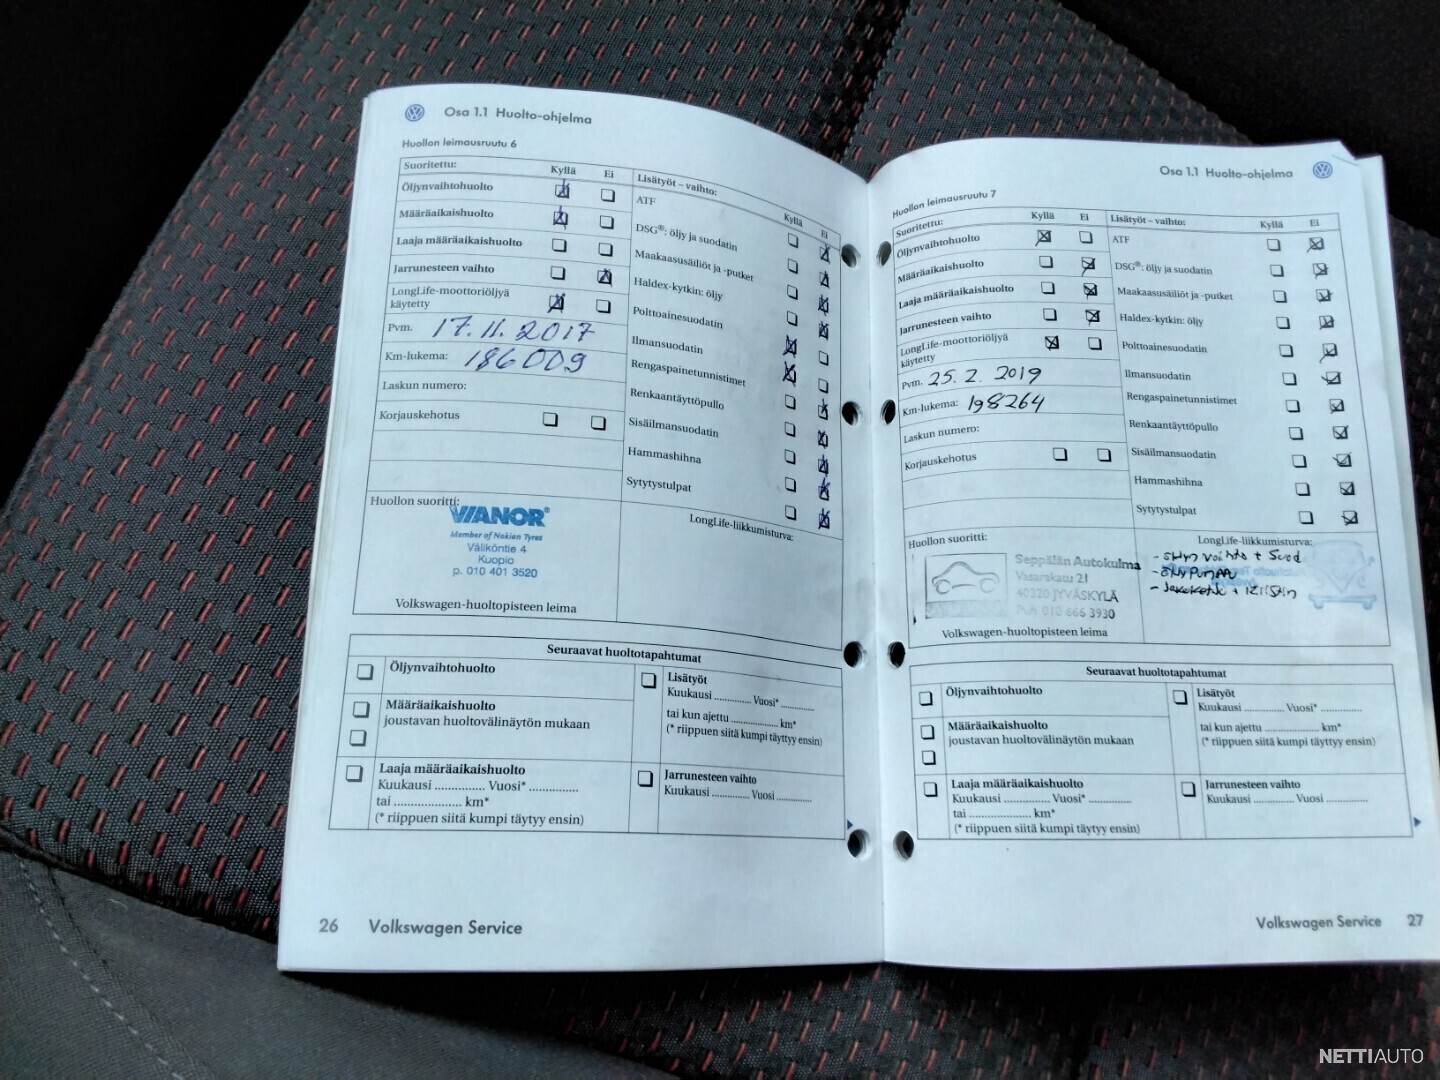 Osa 1.1 Huolto-ohjelma
Huollon leimausruutu 6
Suoritettu:
Kyllä Ei
Öljynvaihtohuolto
Määräaikaishuolto
Laaja määräaikaishuolto
Jarrunesteen vaihto
LongLife-moottoriöljyä
käytetty
Pvm. 17.11.2017
Km-lukema: 186009
Laskun numero:
Korjauskehotus
Huollon suoritti:
VIANOR
Member of Nokian Tyres
Väliköntie 4
Kuopio
p. 010 401 3520
Volkswagen-huoltopisteen leima
Lisätyöt – vaihto:
Kyllä Ei
ATF
DSG®: öljy ja suodatin
Maakaasusäiliöt ja -putket
Haldex-kytkin: öljy
Polttoainesuodatin
Ilmansuodatin
Rengaspainetunnistimet
Renkaantäyttöpullo
Sisäilmansuodatin
Hammashihna
Sytytystulpat
LongLife-liikkumisturva:
Seuraavat huoltotapahtumat
Öljynvaihtohuolto
Määräaikaishuolto
joustavan huoltovälinäytön mukaan
Laaja määräaikaishuolto
Kuukausi ............... Vuosi* ...............
tai ..................... km*
(* riippuen siitä kumpi täytyy ensin)
Lisätyöt
Kuukausi ............. Vuosi* ............
tai kun ajettu .................. km*
(* riippuen siitä kumpi täytyy ensin)
Jarrunesteen vaihto
Kuukausi .............. Vuosi .............
26 Volkswagen Service
Osa 1.1 Huolto-ohjelma
Huollon leimausruutu 7
Suoritettu:
Kyllä Ei
Öljynvaihtohuolto
Määräaikaishuolto
Laaja määräaikaishuolto
Jarrunesteen vaihto
LongLife-moottoriöljyä
käytetty
Pvm. 25.2.2019
Km-lukema: 198264
Laskun numero:
Korjauskehotus
Huollon suoritti:
Seppälän Autokulma
Vasarakatu 21
40320 JYVÄSKYLÄ
Puh. 010 666 3930
Volkswagen-huoltopisteen leima
Lisätyöt – vaihto:
Kyllä Ei
ATF
DSG®: öljy ja suodatin
Maakaasusäiliöt ja -putket
Haldex-kytkin: öljy
Polttoainesuodatin
Ilmansuodatin
Rengaspainetunnistimet
Renkaantäyttöpullo
Sisäilmansuodatin
Hammashihna
Sytytystulpat
LongLife-liikkumisturva:
- vaihto + Suod
Seuraavat huoltotapahtumat
Öljynvaihtohuolto
Määräaikaishuolto
joustavan huoltovälinäytön mukaan
Laaja määräaikaishuolto
Kuukausi .............. Vuosi* .............
tai .................... km*
(* riippuen siitä kumpi täytyy ensin)
Lisätyöt
Kuukausi ............. Vuosi* .............
tai kun ajettu .................. km*
(* riippuen siitä kumpi täytyy ensin)
Jarrunesteen vaihto
Kuukausi ............. Vuosi .............
Volkswagen Service 27
NETTIAUTO